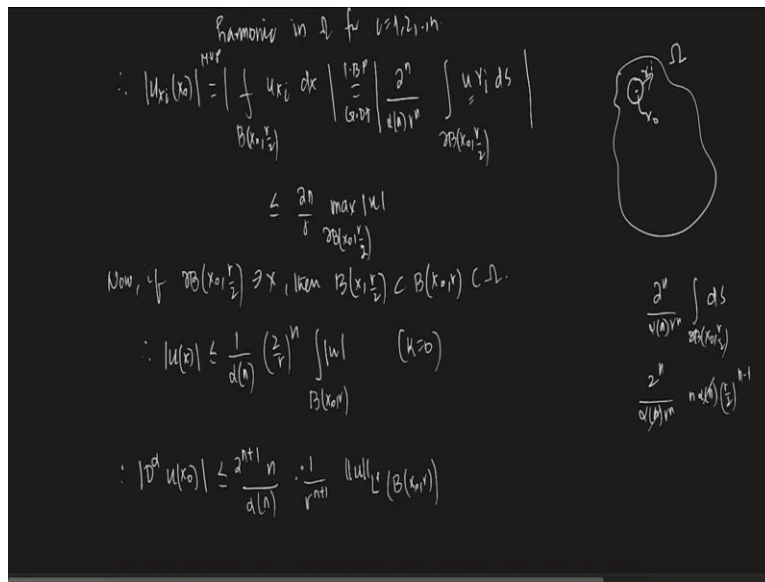 harmonic in Ω for i=1,2,..,n.
∴ |u_{x_i}(x_0)| =^{MVP} | ⨍_{B(x_0,r/2)} u_{x_i} dx | =^{I.B.P}_{G.DT} | 2^n/(α(n)r^n) ∫_{∂B(x_0,r/2)} u ν_i ds |
≤ 2n/r max_{∂B(x_0,r/2)} |u|
Now, if ∂B(x_0,r/2) ∋ x, then B(x,r/2) ⊂ B(x_0,r) ⊂ Ω.
∴ |u(x)| ≤ 1/α(n) (2/r)^n ∫_{B(x_0,r)} |u| (k=0)
∴ |D^α u(x_0)| ≤ 2^{n+1} n/α(n) · 1/r^{n+1} ||u||_{L^1(B(x_0,r))}
Ω
x_0
2^n/(α(n)r^n) ∫_{∂B(x_0,r/2)} ds
2^n/(α(n)r^n) n α(n) (r/2)^{n-1}